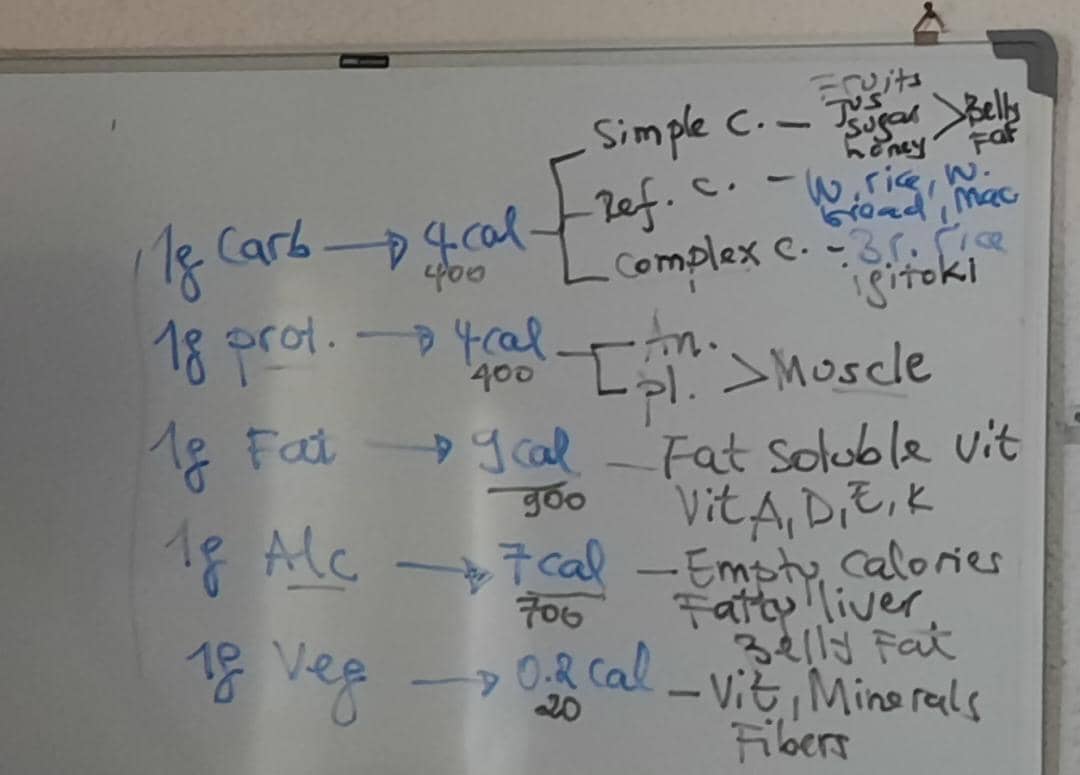 Simple C. - Fruits
Jus
Sugar
honey > Belly
Fat
Ref. C. - W. rice, W.
bread, Mac
1g Carb → 4 cal
400
Complex C. - Br. rice
igitoki
1g prot. → 4 cal
400
An.
pl. > Muscle
1g Fat → 9 cal - Fat Soluble Vit
900
Vit A, D, E, K
1g Alc → 7 cal - Empty Calories
700
Fatty liver
Belly Fat
1g Veg → 0.2 Cal - Vit, Minerals
20
Fibers